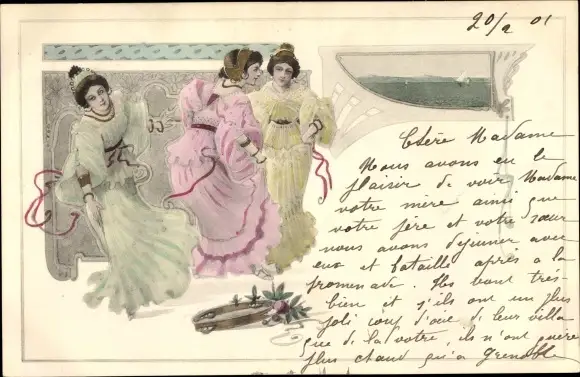 20/2 01
Chère Madame
Nous avons eu le
plaisir de voir Madame
votre mère ainsi que
votre père et votre sœur
nous avons déjeuner avec
eux et bataille après à la
promenade. Ils vont très-
bien et s'ils ont un plus
joli coup d'œil de leur villa
que de la votre, ils n'ont guère
plus chaud qu'à Grenoble